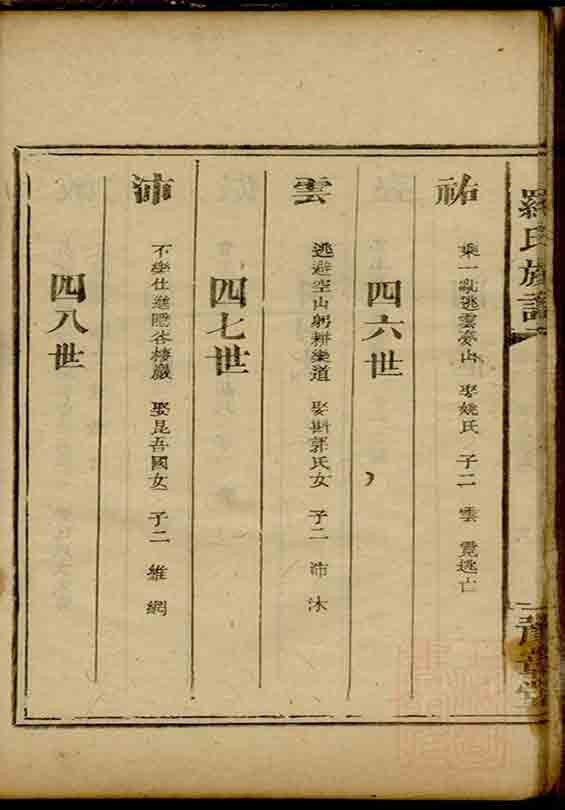 羅氏族譜
豫章堂
祐 乘一亂逃雲夢山 娶姚氏 子二 雲 霓逃亡
四六世
雲 逃避空山躬耕樂道 娶斟郭氏女 子二 沛 沐
四七世
沛 不樂仕進隱谷棲巖 娶昆吾國女 子二 維 網
四八世